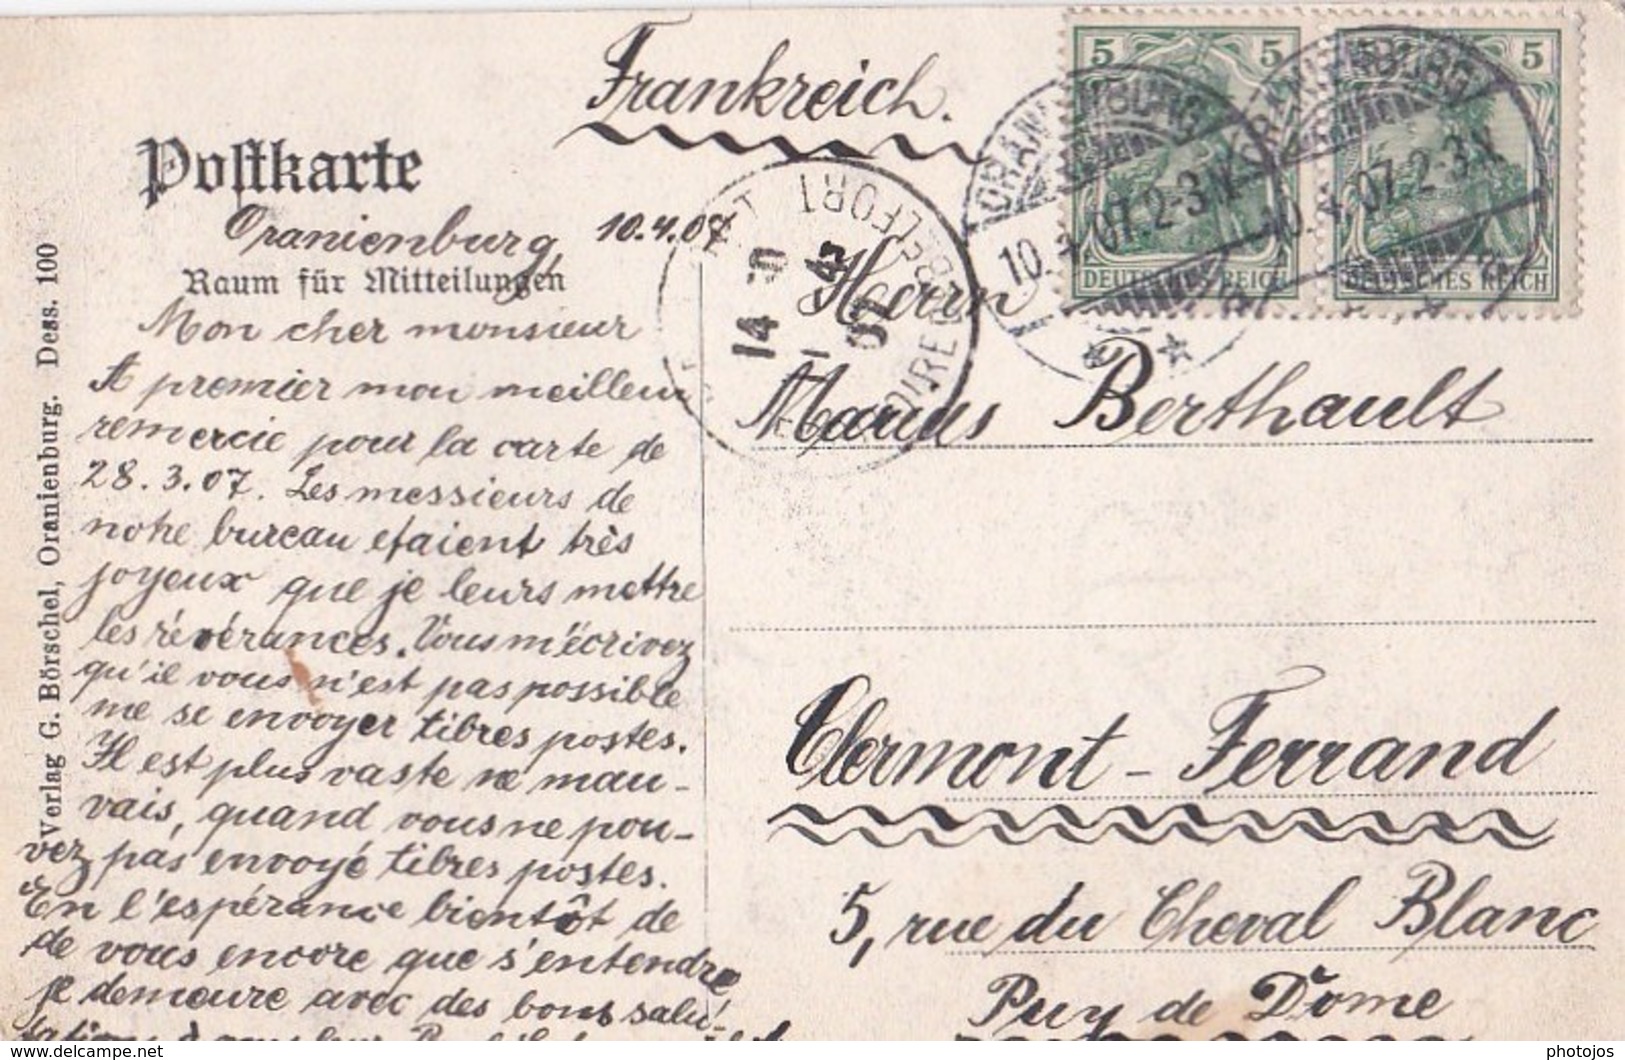 Frankreich.
Postkarte
Oranienburg, 10.4.07
Raum für Mitteilungen
Mon cher monsieur
A premier mon meilleur
remercie pour la carte de
28.3.07. Les messieurs de
notre bureau etaient très
joyeux que je leurs mettre
les révérances. Vous m'écrivez
qu'il vous n'est pas possible
me se envoyer tibres postes.
Il est plus vaste ne mau-
vais, quand vous ne pou-
vez pas envoyé tibres postes.
En l'espérance bientôt de
de vous encore que s'entendre
je demeure avec des bons salu-
tations à
Verlag G. Börschel, Oranienburg. Dess. 100
5 5
DEUTSCHES REICH
5
DEUTSCHES REICH
ORANIENBURG
10.4.07.2-3N.
ORANIENBURG
10.4.07.2-3N.
BELFORT
14
4
07
Herrn
Marius Berthault
Clermont-Ferrand
5, rue du Cheval Blanc
Puy de Dome
delcampe.net
photojos